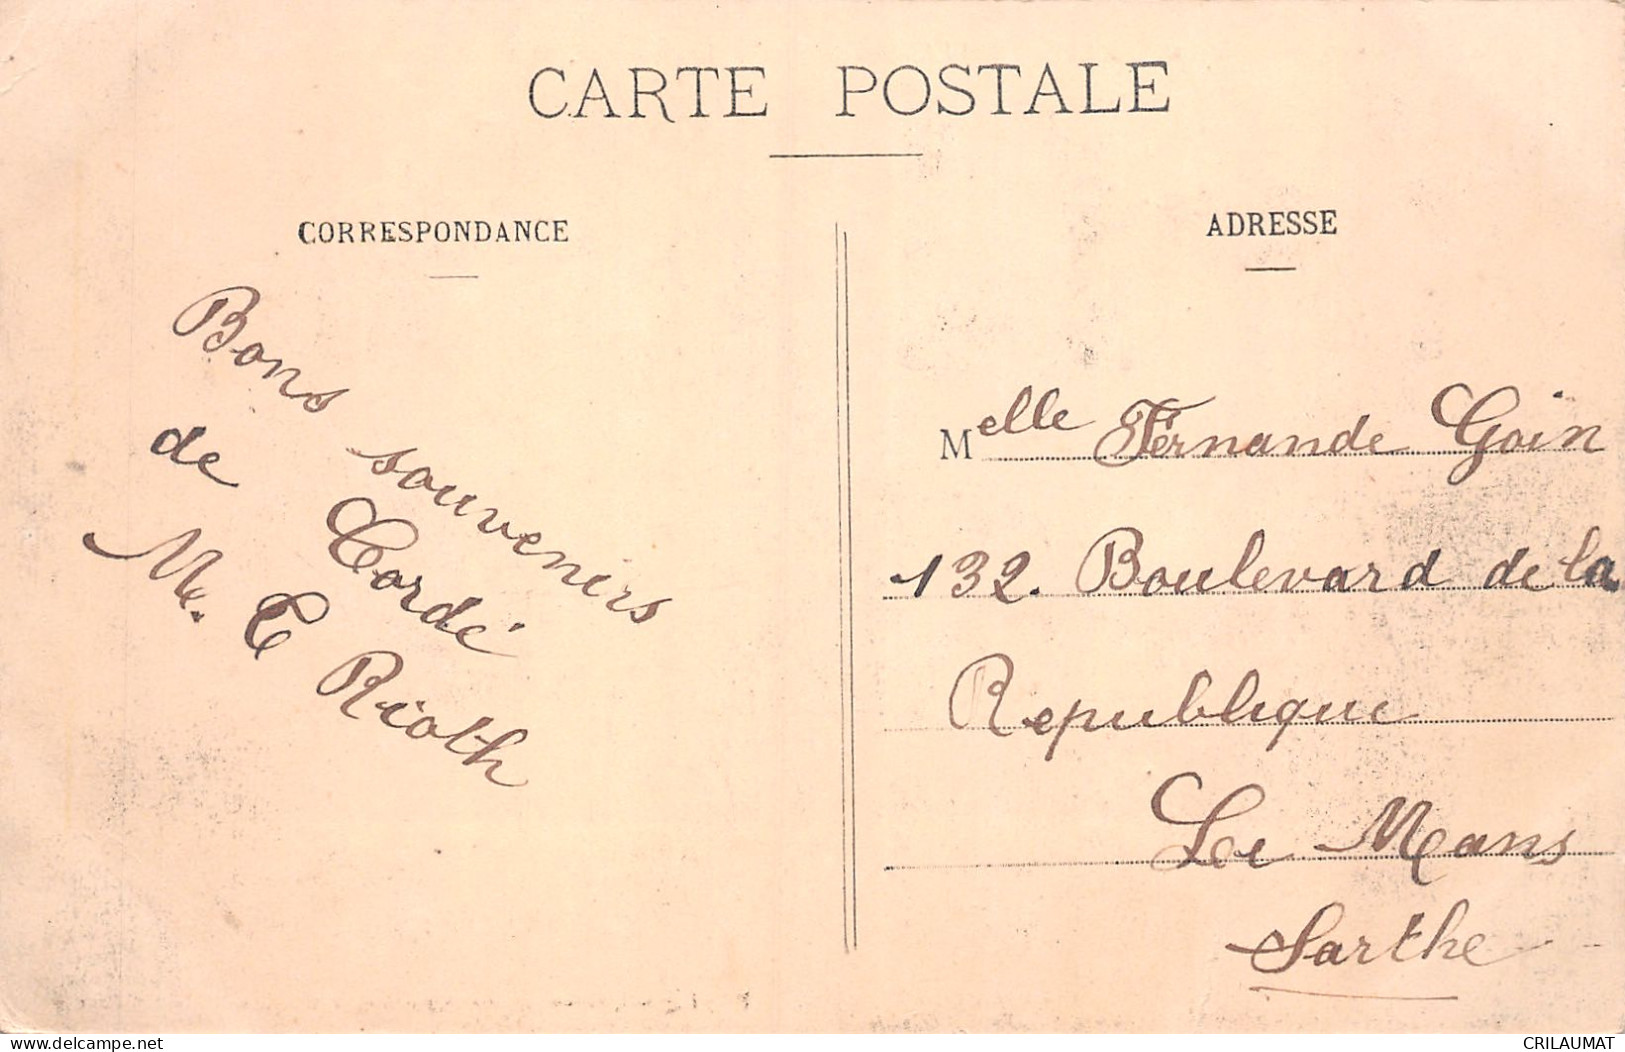 CARTE POSTALE
CORRESPONDANCE
Bons souvenirs
de Cordé
M. C Rioth
ADRESSE
Melle Fernande Goin
132. Boulevard de la
Republique
Le Mans
Sarthe
www.delcampe.net
CRILAUMAT